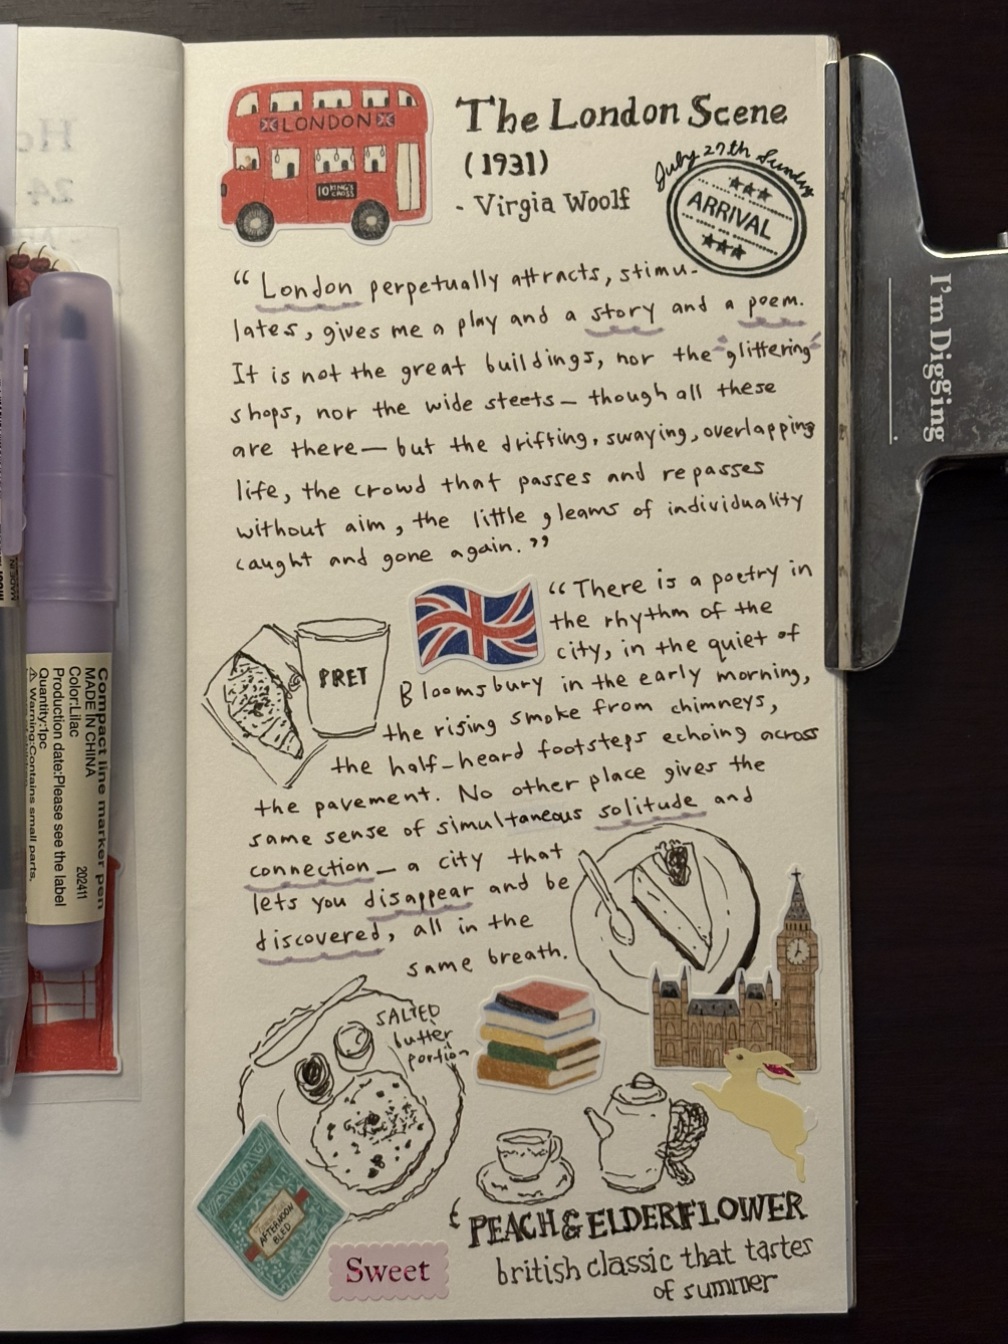 LONDON
10 KING'S CROSS
The London Scene
(1931)
- Virgia Woolf
July 27th Sunday
ARRIVAL
"London perpetually attracts, stimu-
lates, gives me a play and a story and a poem.
It is not the great buildings, nor the glittering
shops, nor the wide steets — though all these
are there — but the drifting, swaying, overlapping
life, the crowd that passes and repasses
without aim, the little gleams of individuality
caught and gone again."
"There is a poetry in
the rhythm of the
city, in the quiet of
Bloomsbury in the early morning,
the rising smoke from chimneys,
the half-heard footsteps echoing across
the pavement. No other place gives the
same sense of simultaneous solitude and
connection — a city that
lets you disappear and be
discovered, all in the
same breath.
PRET
SALTED
butter
portion
AFTERNOON
BLED
Sweet
PEACH & ELDERFLOWER
british classic that tastes
of summer
I'm Digging
Compact line marker pen
MADE IN CHINA
Color:Lilac 202411
Production date:Please see the label
Quantity:1pc
⚠ Warning:Contains small parts.
24